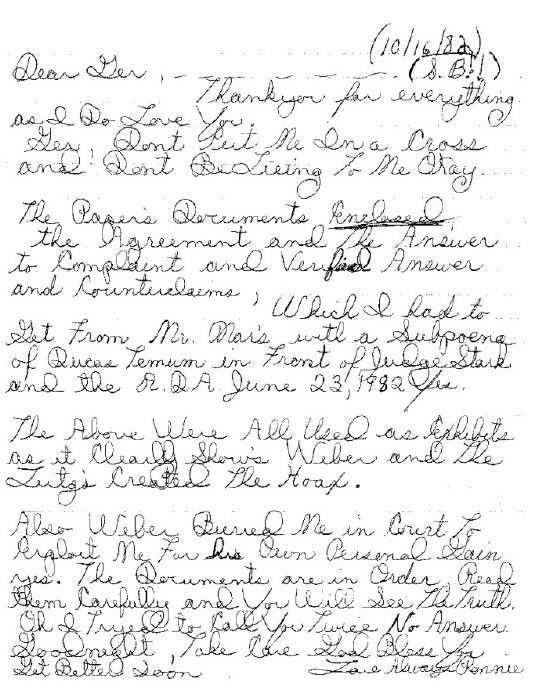 (10/16/82)
(S.B.!!)
Dear Ger,
Thankyou for everything
as I Do Love You.
Ger, Dont Put Me In a Cross
and Dont Be Lieing To Me Okay.
The Papers Documents Enclosed
the Agreement and The Answer
to Complaint and Verified Answer
and Counterclaims, Which I had to
Get From Mr. Mars with a Subpoena
of Ducas Temum in Front of Judge Stark
and the A.D.A. June 23, 1982 Yes.
The Above Were All Used as Exhibits
as it Clearly Show's Weber and The
Lutz's Created The Hoax.
Also Weber Buried Me in Court To
Exploit Me For his Own Personal Gain
yes. The Documents are in Order, Read
Them Carefully and You Will See The Truth.
Oh I Tryed to Call You Twice No Answer
Goodnight, Take Care God Bless You
Get Better Soon Love Always Ronnie